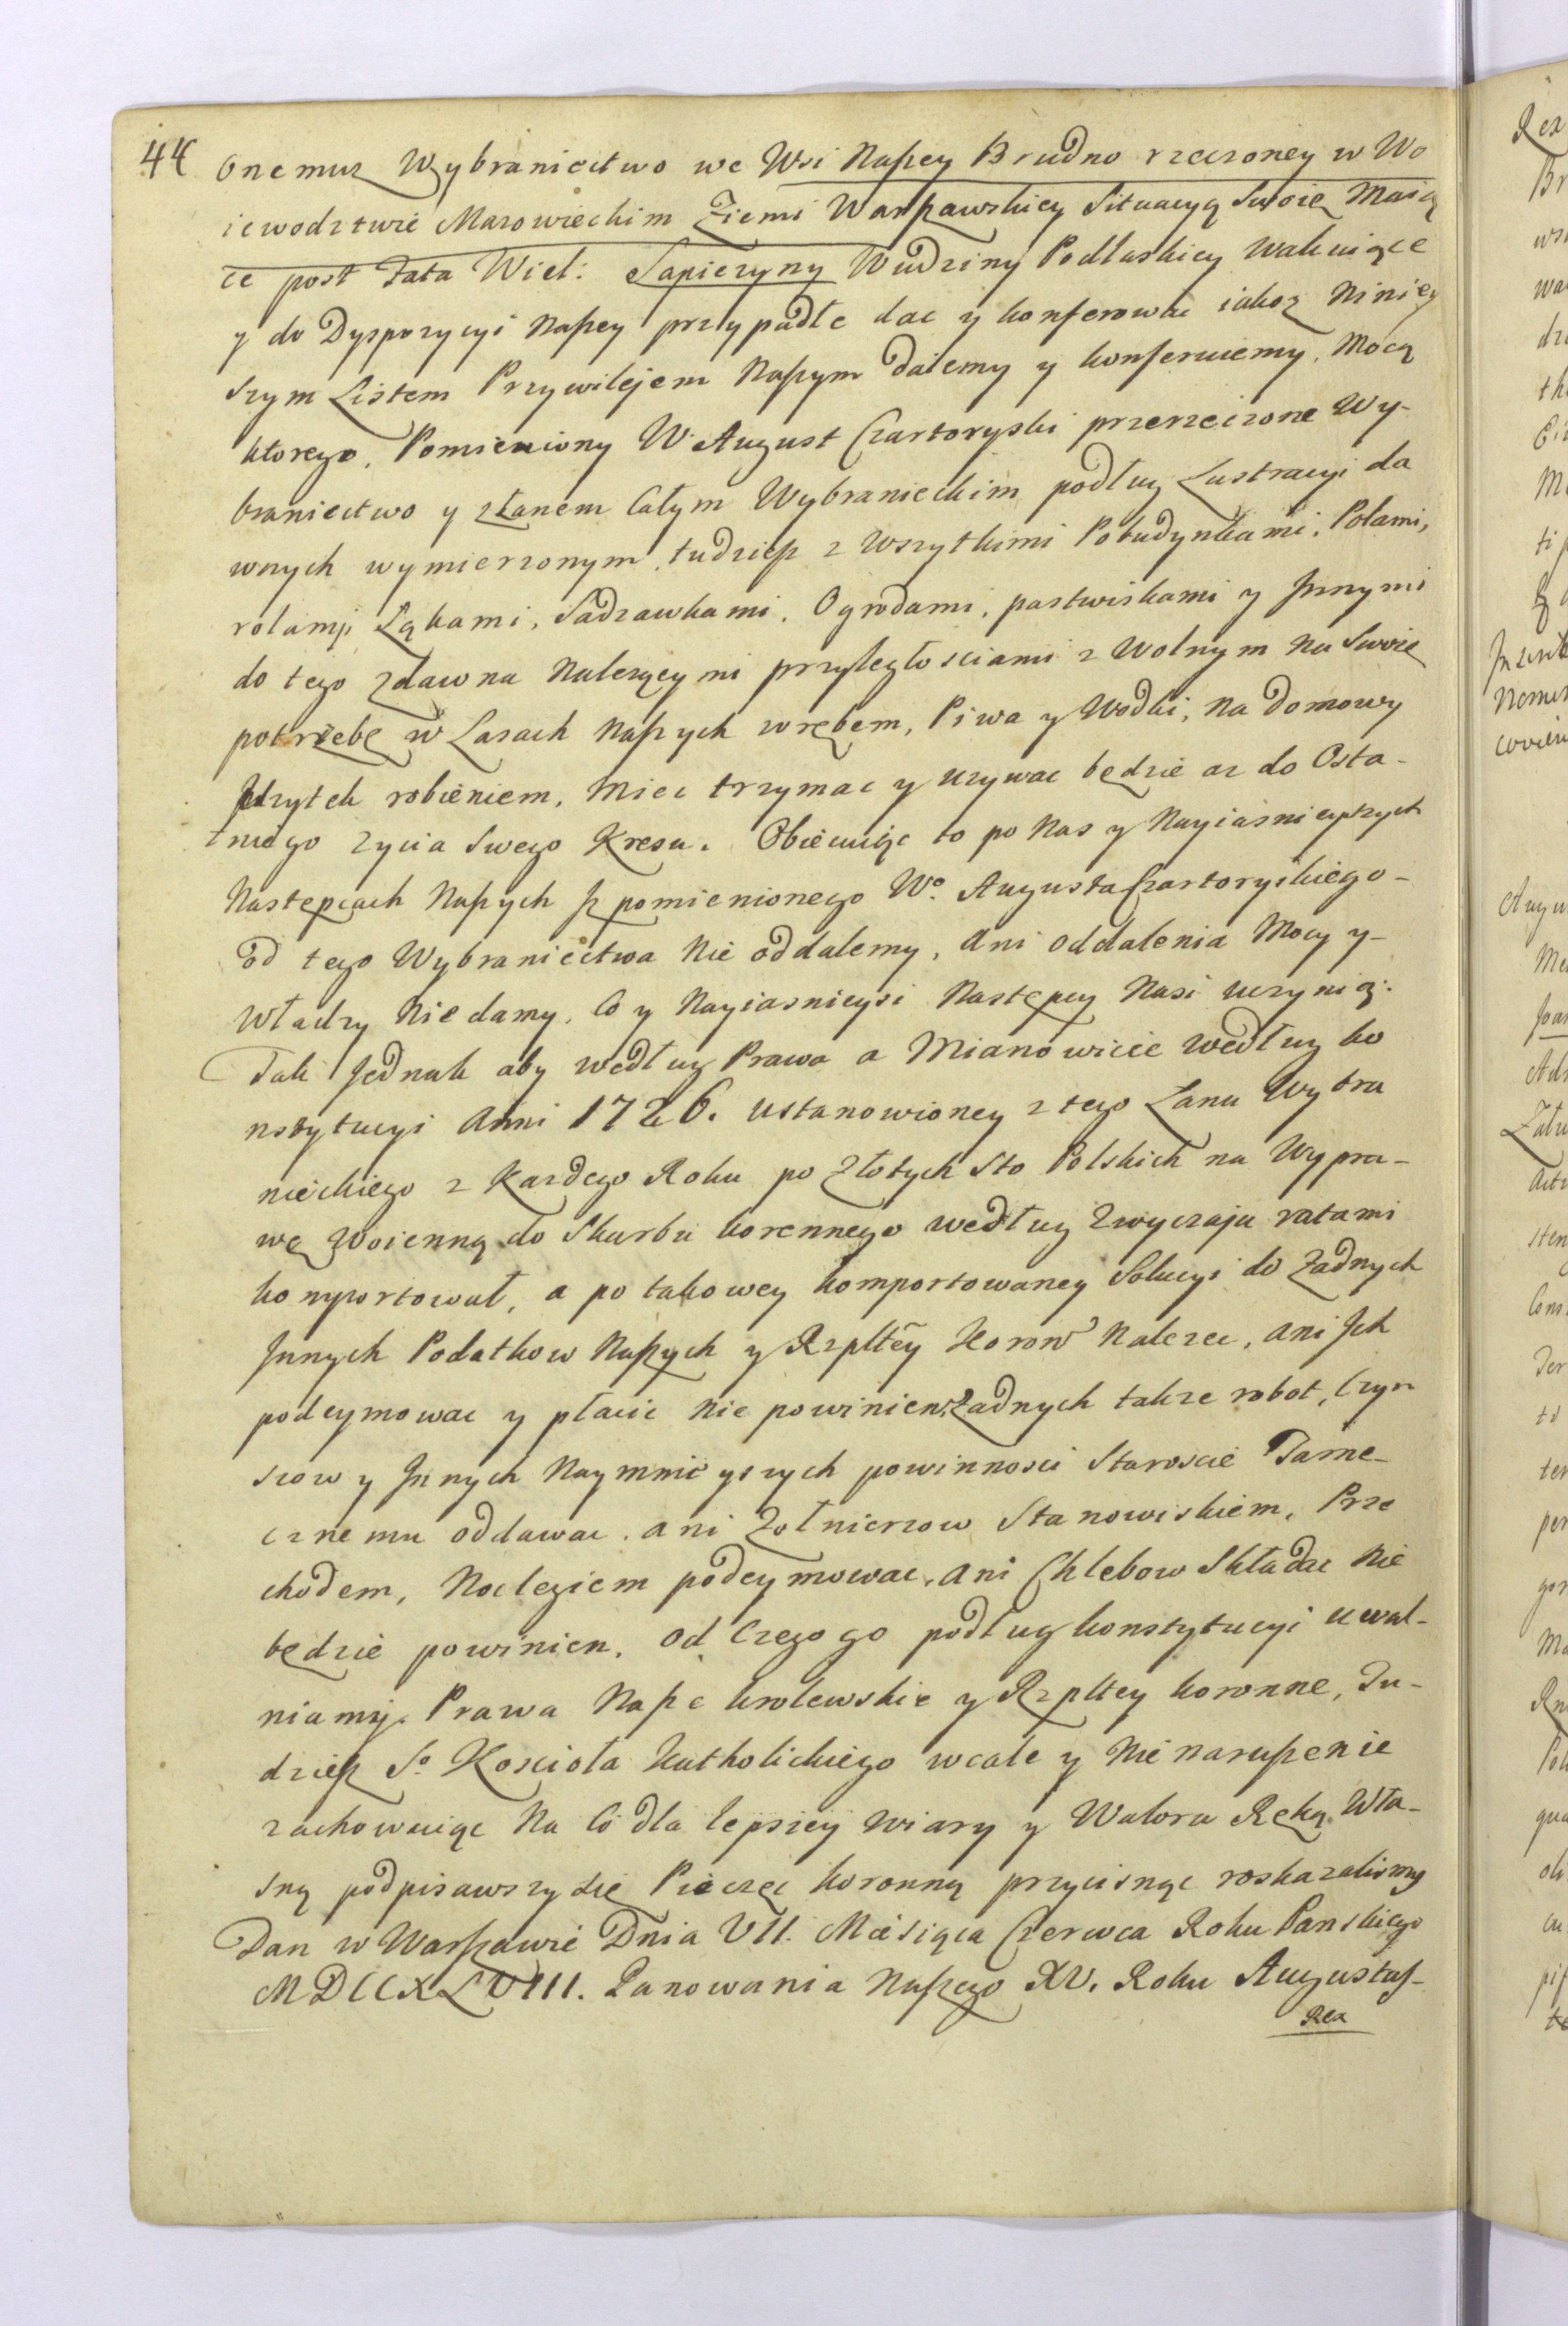 44
onemuz Wybraniectwo we Wsi Naszey Brudno rzeczoney w Wo
iewodztwie Mazowieckim Ziemi Warszawskiey Situacyą Swoię Maią
ce post Fata Wiel: Sapiezyny Wudziny Podlaskiey Wakuiące
y do Dyspozycyi Naszey przypadłe dac y konferowac iakoz Niniey
szym Listem Przywilejem Naszym Daiemy y konferuiemy. Mocą
ktorego, Pomieniony W. August Czartoryski przerzeczone Wy-
braniectwo y złanem Całym Wybranieckim podług Lustracyi da
wnych wymierzonym, tudziesz z Wszytkimi Pobudynkami, Polami,
rolami, Łąkami, Sadzawkami, Ogrodami, pastwiskami y Innymi
do tego zdawna Nalezącymi przyległosciami z Wolnym Na Swoię
potrzebę w Lasach Naszych wrębem, Piwa y Wodki, Na Domowy
szytek robieniem, Miec trzymac y uzywac będzie az do Osta-
tniego zycia Swego Kresu. Obiecuiąc to po Nas y Nayiasnieyszych
Następcach Naszych Jz pomienionego Wo. Augusta Czartoryskiego-
od tego Wybraniectwa Nie oddalemy, ani oddalenia Mocy y-
Władzy Nie damy, Co y Nayiasnieysi Następcy Nasi uczynią.
Tak Jednak aby według Prawa a Mianowicie według ko
nstytucyi Anni 1726. ustanowioney z tego Łanu Wybra
nieckiego z Kazdego Roku po Złotych Sto Polskich na Wypra-
wę Woienną do Skarbu korennego według Zwyczaju ratami
komportował, a po takowey komportowaney Solucyi do Zadnych
Innych Podatkow Naszych y Rzpltey Koron Nalezec, ani Ich
podeymowac y płacic Nie powinien, Zadnych takze robot, Czyn
szow y Innych Naymnieyszych powinnosci Staroscie Tame-
cznemu oddawac, ani Zołnierzow Stanowiskiem, Prze
chodem, Noclegiem podeymowac, ani Chlebow Składac Nie
będzie powinien, od Czego go podług konstytucyi uwal-
niamy. Prawa Nasze krolewskie y Rzpltey koronne, Tu-
dziesz So. Kosciola Katholickiego wcale y Nienaruszenie
zachowuiąc Na Co dla lepszey wiary y Waloru Ręką Wła-
sną podpisawszy się Pieczęc koronną przycisnąc roskazalismy
Dan w Warszawie Dnia VII. Miesiąca Czerwca Roku Panskiego
MDCCXLVIII. Panowania Naszego XV. Roku Augustus
Rex